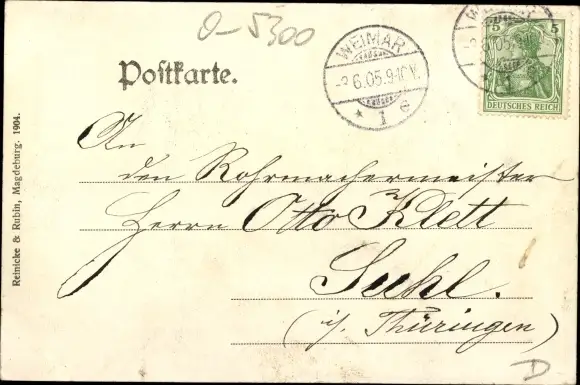 0-5300
WEIMAR
-2.6.05.9-10V.
* 1 e
5 5
DEUTSCHES REICH
Postkarte.
An
den Rohrmachermeister
Herrn Otto Klett
Suhl.
(i/. Thüringen)
D
Reinicke & Rubin, Magdeburg. 1904.